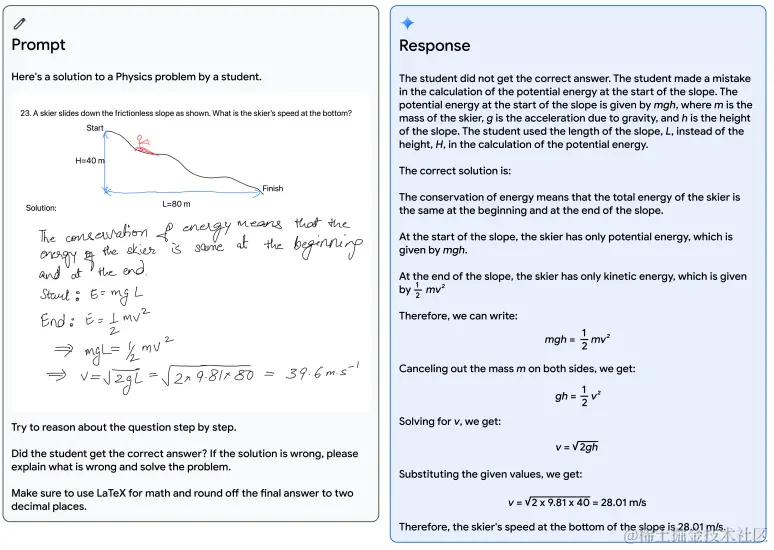 Prompt
Here's a solution to a Physics problem by a student.
23. A skier slides down the frictionless slope as shown. What is the skier's speed at the bottom?
Start
H=40 m
Finish
L=80 m
Solution:
The conservation of energy means that the
energy of the skier is same at the beginning
and at the end.
Start: E = mgL
End: E = 1/2 mv²
⇒ mgL = 1/2 mv²
⇒ v = √2gL = √2×9.81×80 = 39.6 m.s⁻¹
Try to reason about the question step by step.
Did the student get the correct answer? If the solution is wrong, please
explain what is wrong and solve the problem.
Make sure to use LaTeX for math and round off the final answer to two
decimal places.
Response
The student did not get the correct answer. The student made a mistake
in the calculation of the potential energy at the start of the slope. The
potential energy at the start of the slope is given by mgh, where m is the
mass of the skier, g is the acceleration due to gravity, and h is the height
of the slope. The student used the length of the slope, L, instead of the
height, H, in the calculation of the potential energy.
The correct solution is:
The conservation of energy means that the total energy of the skier is
the same at the beginning and at the end of the slope.
At the start of the slope, the skier has only potential energy, which is
given by mgh.
At the end of the slope, the skier has only kinetic energy, which is given
by 1/2 mv²
Therefore, we can write:
mgh = 1/2 mv²
Canceling out the mass m on both sides, we get:
gh = 1/2 v²
Solving for v, we get:
v = √2gh
Substituting the given values, we get:
v = √2 x 9.81 x 40 = 28.01 m/s
Therefore, the skier's speed at the bottom of the slope is 28.01 m/s.
@稀土掘金技术社区